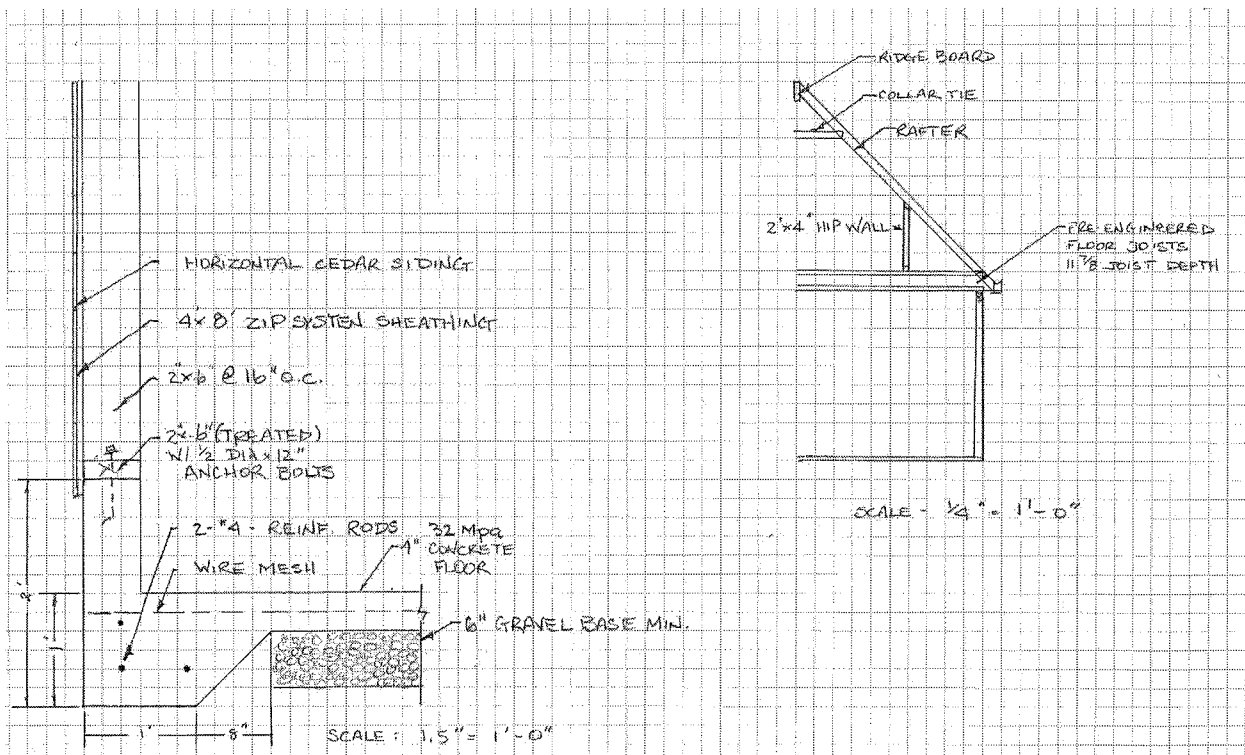 HORIZONTAL CEDAR SIDING
4'x 8' ZIP SYSTEN SHEATHING
2"x6" @ 16" O.C.
2"x 6" (TREATED)
W/ 1/2 DIA x 12"
ANCHOR BOLTS
2-#4 - REINF. RODS
32 Mpa
4" CONCRETE
FLOOR
WIRE MESH
6" GRAVEL BASE MIN.
2'
1'
1'
8"
SCALE: 1.5" = 1'-0"
RIDGE BOARD
COLLAR TIE
RAFTER
2"x4" HIP WALL
PRE ENGINEERED
FLOOR JOISTS
11 7/8 JOIST DEPTH
SCALE - 1/4" = 1'-0"